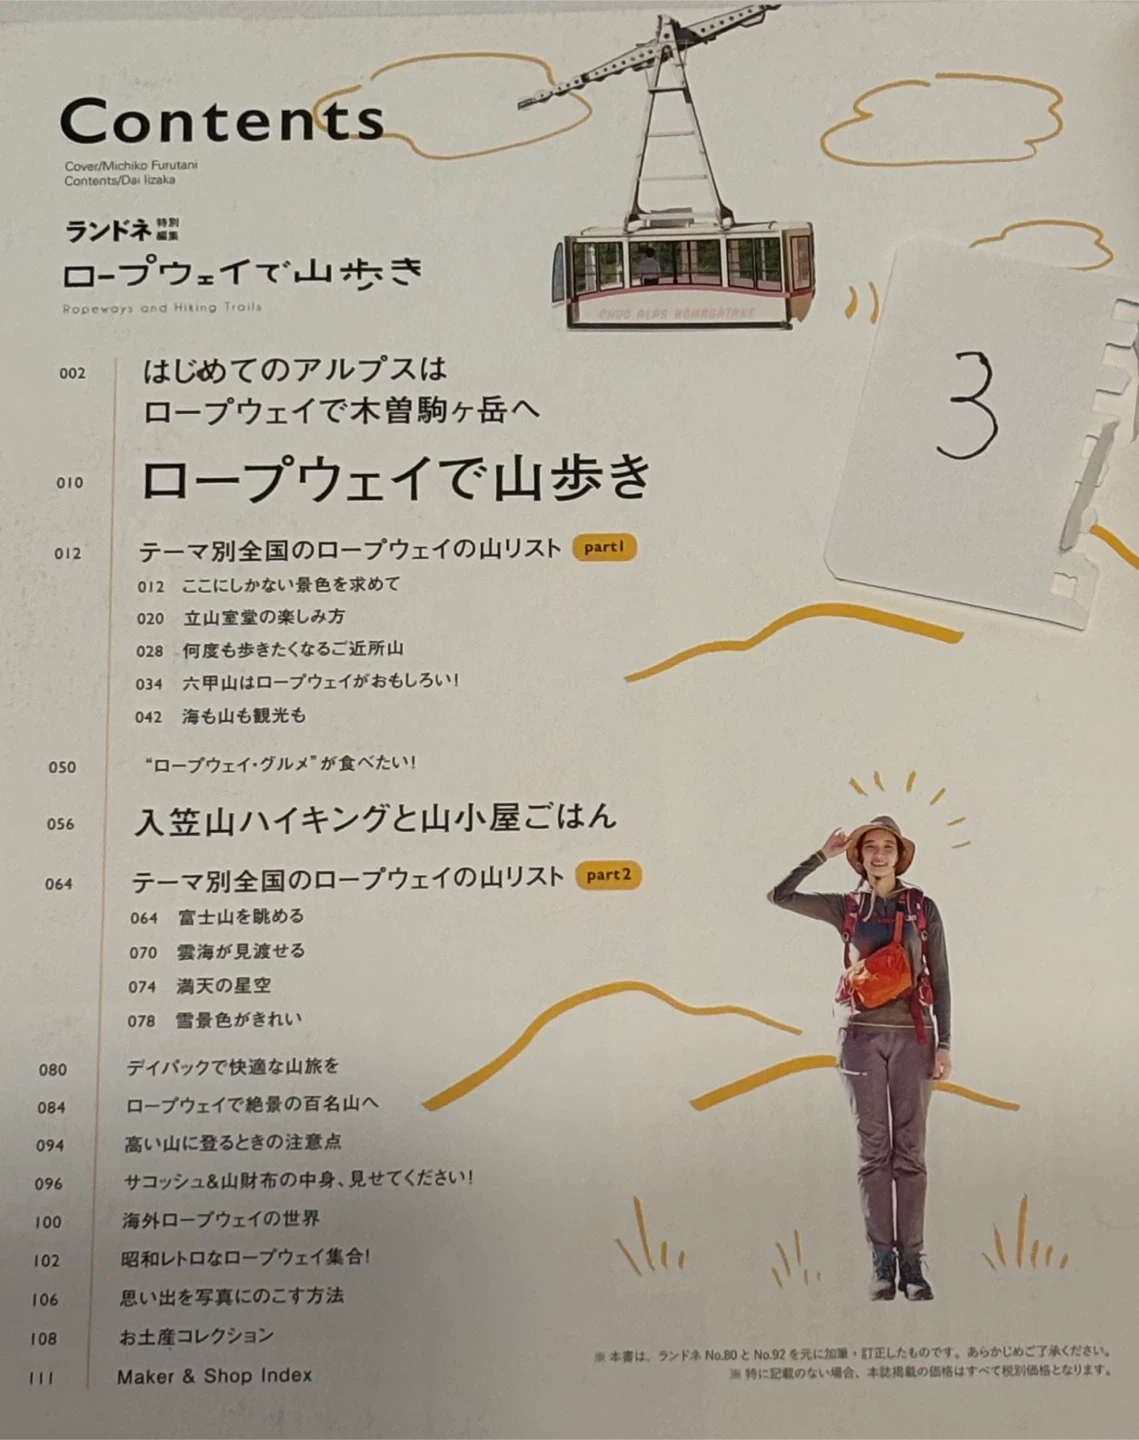 Contents
Cover/Michiko Furutani
Contents/Dai Iizaka
ランドネ 特別編集
ロープウェイで山歩き
Ropeways and Hiking Trails
CHUO ALPS KOMAGATAKE
3
002 はじめてのアルプスは
ロープウェイで木曽駒ヶ岳へ
010 ロープウェイで山歩き
012 テーマ別全国のロープウェイの山リスト part1
012 ここにしかない景色を求めて
020 立山室堂の楽しみ方
028 何度も歩きたくなるご近所山
034 六甲山はロープウェイがおもしろい!
042 海も山も観光も
050 “ロープウェイ・グルメ”が食べたい!
056 入笠山ハイキングと山小屋ごはん
064 テーマ別全国のロープウェイの山リスト part2
064 富士山を眺める
070 雲海が見渡せる
074 満天の星空
078 雪景色がきれい
080 デイパックで快適な山旅を
084 ロープウェイで絶景の百名山へ
094 高い山に登るときの注意点
096 サコッシュ&山財布の中身、見せてください!
100 海外ロープウェイの世界
102 昭和レトロなロープウェイ集合!
106 思い出を写真にのこす方法
108 お土産コレクション
111 Maker & Shop Index
※本書は、ランドネ No.80 と No.92 を元に加筆・訂正したものです。あらかじめご了承ください。
※特に記載のない場合、本誌掲載の価格はすべて税別価格となります。